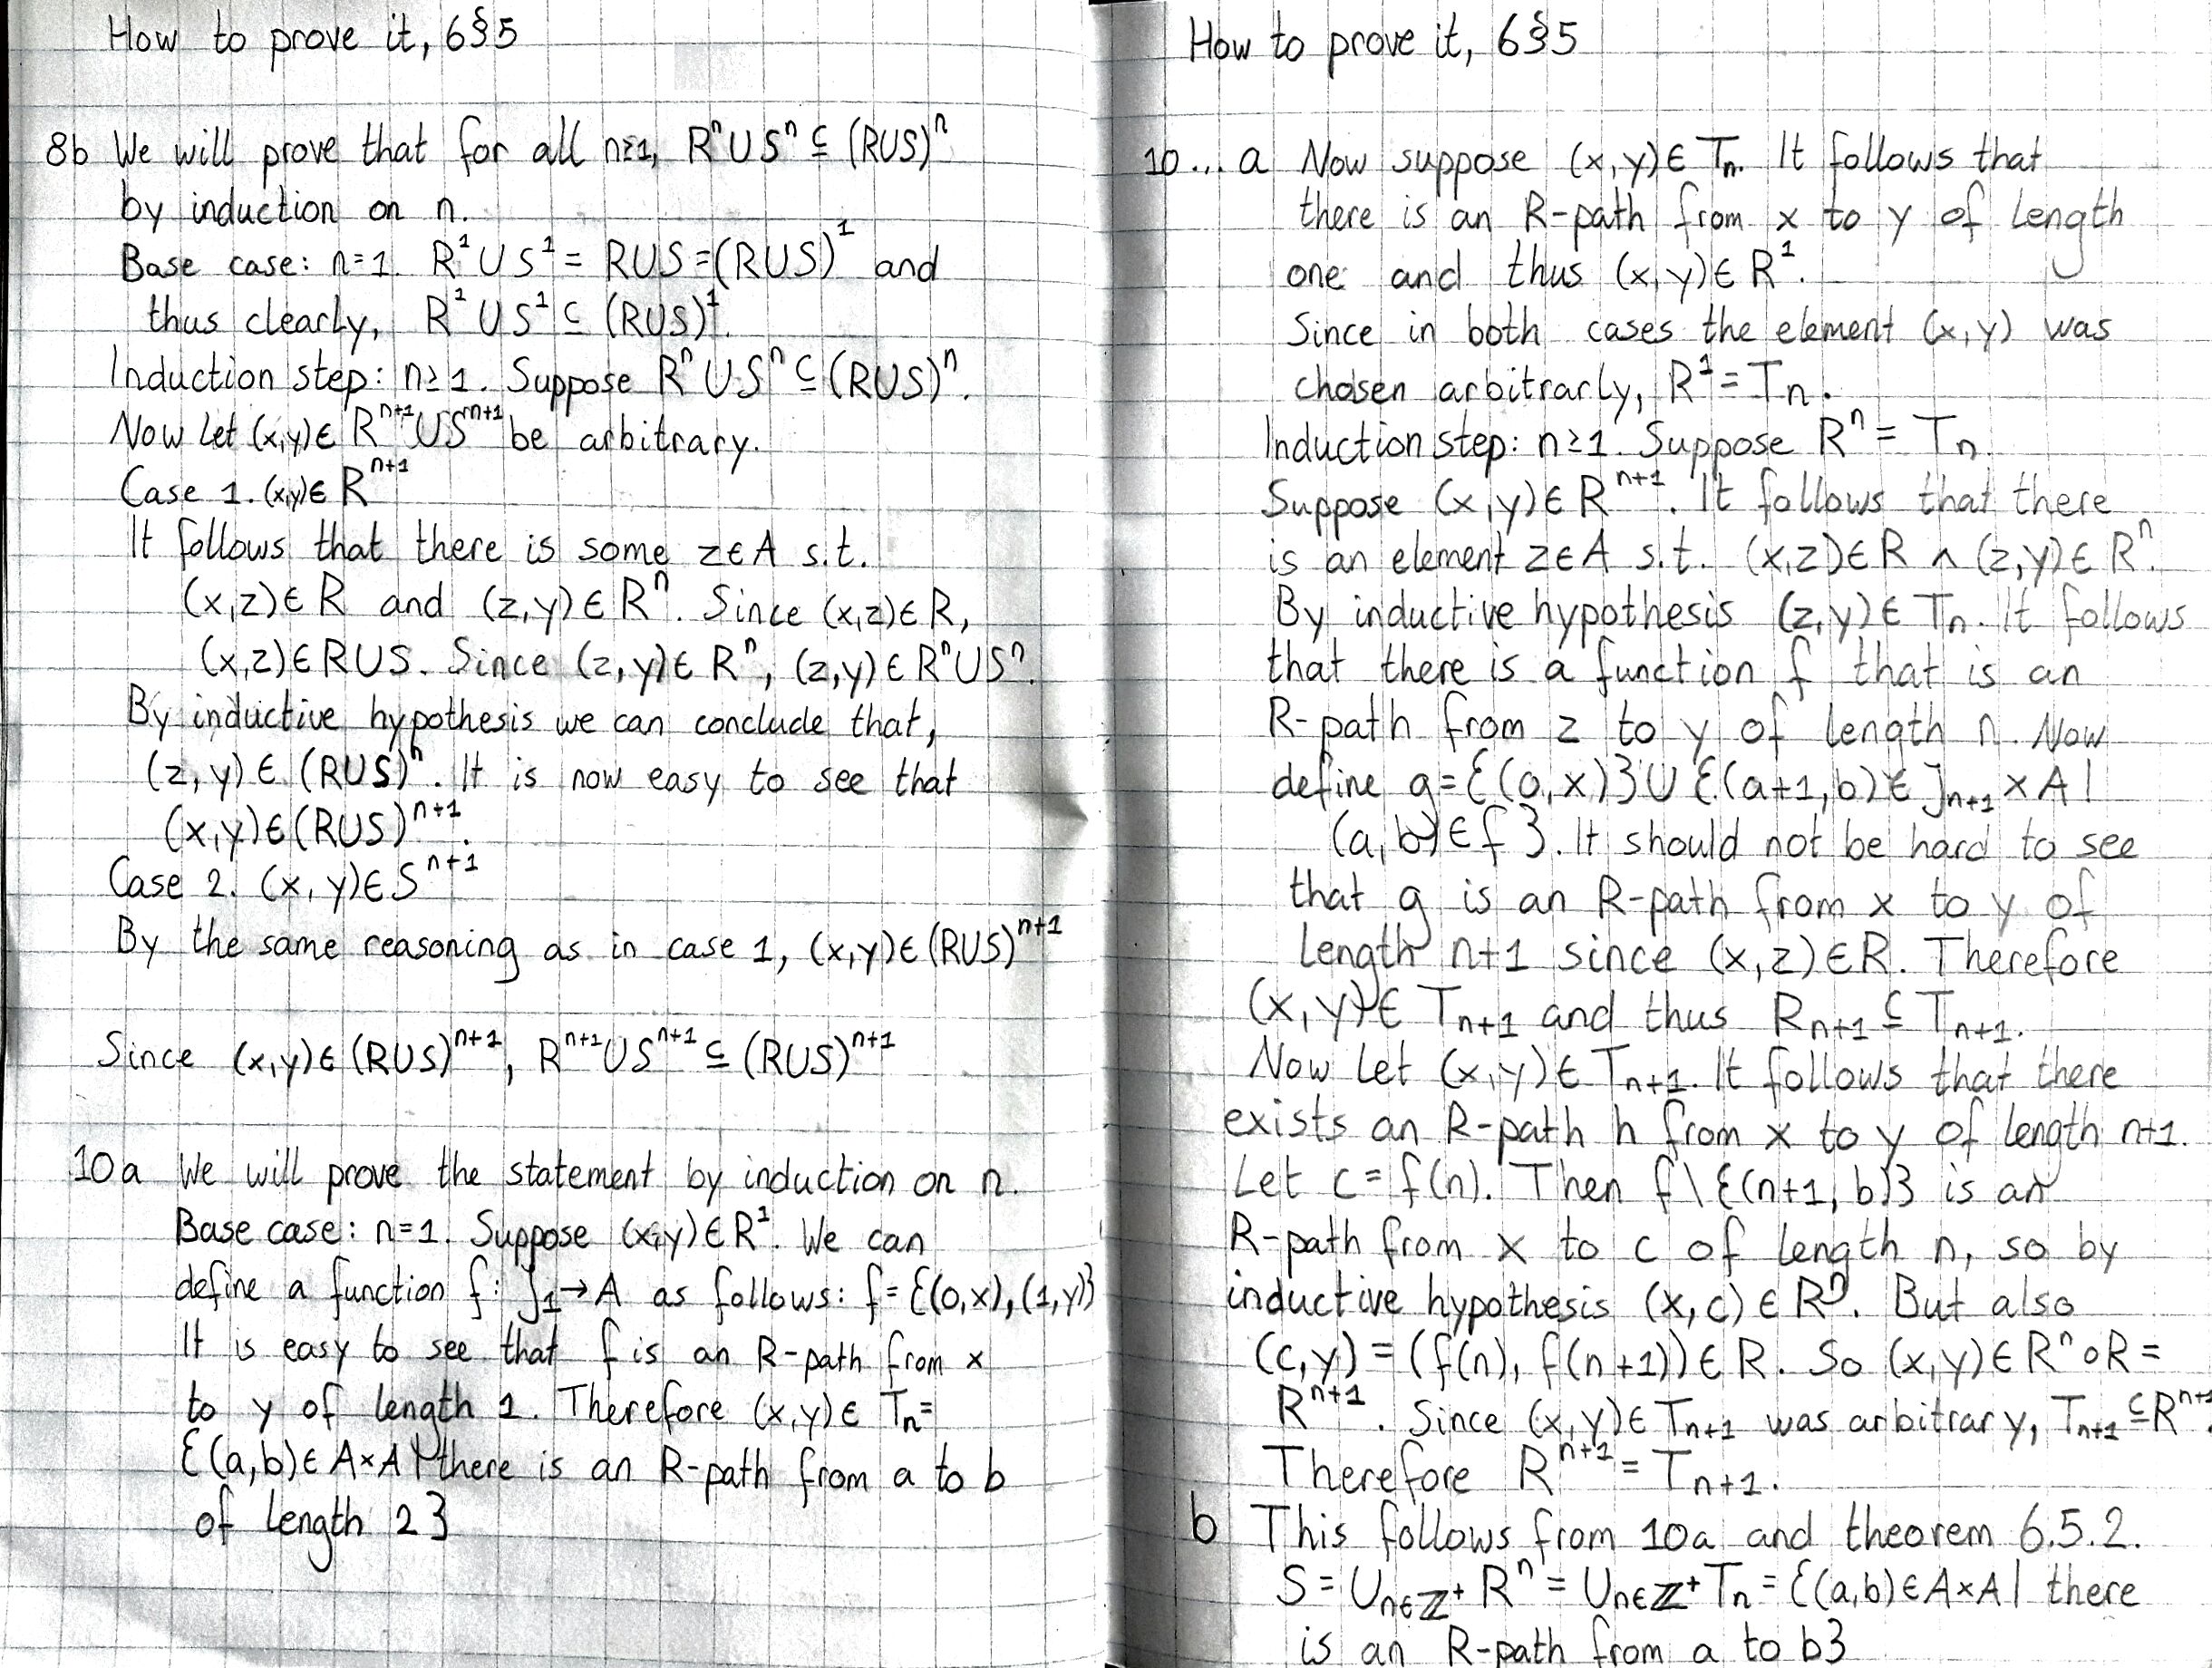 How to prove it, 6§5
8b We will prove that for all n≥1, Rⁿ∪Sⁿ ⊆ (R∪S)ⁿ
by induction on n.
Base case: n=1. R¹∪S¹ = R∪S=(R∪S)¹ and
thus clearly, R¹∪S¹ ⊆ (R∪S)¹.
Induction step: n≥1. Suppose Rⁿ∪Sⁿ ⊆ (R∪S)ⁿ.
Now let (x,y)∈ Rⁿ⁺¹∪Sⁿ⁺¹ be arbitrary.
Case 1. (x,y)∈ Rⁿ⁺¹
It follows that there is some z∈A s.t.
(x,z)∈ R and (z,y)∈ Rⁿ. Since (x,z)∈ R,
(x,z)∈ R∪S. Since (z,y)∈ Rⁿ, (z,y)∈ Rⁿ∪Sⁿ.
By inductive hypothesis we can conclude that,
(z,y)∈ (R∪S)ⁿ. It is now easy to see that
(x,y)∈(R∪S)ⁿ⁺¹.
Case 2. (x,y)∈Sⁿ⁺¹
By the same reasoning as in case 1, (x,y)∈(R∪S)ⁿ⁺¹
Since (x,y)∈(R∪S)ⁿ⁺¹, Rⁿ⁺¹∪Sⁿ⁺¹ ⊆ (R∪S)ⁿ⁺¹
10a We will prove the statement by induction on n.
Base case: n=1. Suppose (x,y)∈R¹. We can
define a function f: J₁→A as follows: f={(0,x),(1,y)}
It is easy to see that f is an R-path from x
to y of length 1. Therefore (x,y)∈ Tₙ=
{(a,b)∈ A×A | there is an R-path from a to b
of length 2}
How to prove it, 6§5
10... a Now suppose (x,y)∈ Tₙ. It follows that
there is an R-path from x to y of length
one and thus (x,y)∈ R¹.
Since in both cases the element (x,y) was
chosen arbitrarly, R¹=Tₙ.
Induction step: n≥1. Suppose Rⁿ = Tₙ
Suppose (x,y)∈ Rⁿ⁺¹. It follows that there
is an element z∈A s.t. (x,z)∈R ∧ (z,y)∈ Rⁿ.
By inductive hypothesis (z,y)∈ Tₙ. It follows
that there is a function f that is an
R-path from z to y of length n. Now
define g={(0,x)}∪{(a+1,b)∈ Jₙ₊₁×A|
(a,b)∈f}. It should not be hard to see
that g is an R-path from x to y of
length n+1 since (x,z)∈R. Therefore
(x,y)∈ Tₙ₊₁ and thus Rₙ₊₁ ⊆ Tₙ₊₁.
Now let (x,y)∈ Tₙ₊₁. It follows that there
exists an R-path h from x to y of length n+1.
Let c=f(n). Then f\{(n+1,b)} is an
R-path from x to c of length n, so by
inductive hypothesis (x,c)∈Rⁿ. But also
(c,y) = (f(n), f(n+1))∈R. So (x,y)∈Rⁿ∘R=
Rⁿ⁺¹. Since (x,y)∈Tₙ₊₁ was arbitrary, Tₙ₊₁⊆Rⁿ⁺¹.
Therefore Rⁿ⁺¹ = Tₙ₊₁.
b This follows from 10a and theorem 6.5.2.
S = ∪n∈ℤ⁺ Rⁿ = ∪n∈ℤ⁺ Tₙ = {(a,b)∈A×A| there
is an R-path from a to b}